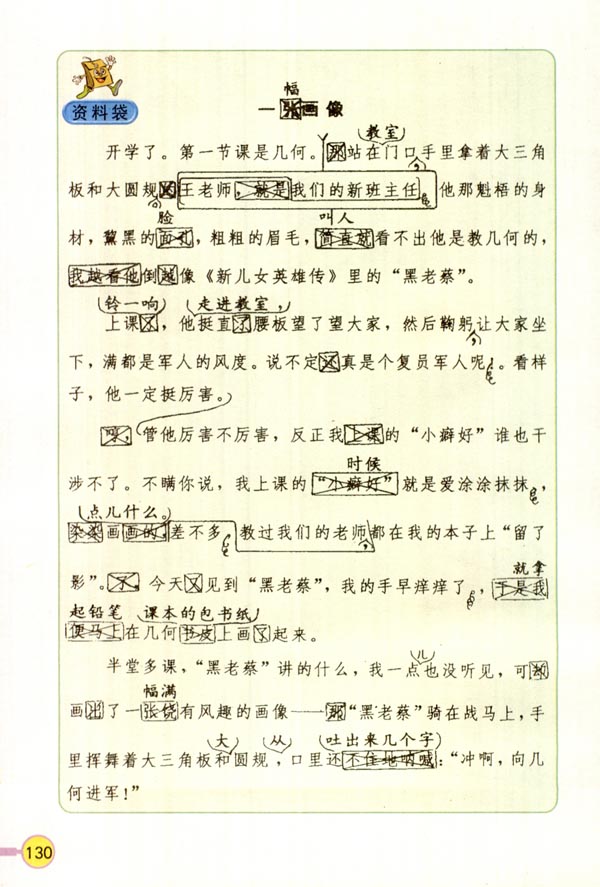 资料袋
幅
一张画像
教室
开学了。第一节课是几何。那站在门口手里拿着大三角
板和大圆规王老师，就是我们的新班主任 他那魁梧的身
脸 叫人
材，黧黑的面孔，粗粗的眉毛，简直就看不出他是教几何的，
我越看他倒越像《新儿女英雄传》里的“黑老蔡”。
铃一响 走进教室，
上课了，他挺直了腰板望了望大家，然后鞠躬让大家坐
下，满都是军人的风度。说不定还真是个复员军人呢。看样
子，他一定挺厉害。
管他厉害不厉害，反正我上课的“小癖好”谁也干
时候
涉不了。不瞒你说，我上课的“小癖好”就是爱涂涂抹抹，
点儿什么。
染染画画的，差不多 教过我们的老师都在我的本子上“留了
就拿
影”。了。今天又见到“黑老蔡”，我的手早痒痒了，于是我
起铅笔 课本的包书纸
便马上在几何书皮上画了起来。
儿
半堂多课，“黑老蔡”讲的什么，我一点也没听见，可却
幅满
画出了一张饶有风趣的画像——那“黑老蔡”骑在战马上，手
大 从 吐出来几个字
里挥舞着大三角板和圆规，口里还不住地呐喊：“冲啊，向几
何进军！”
130